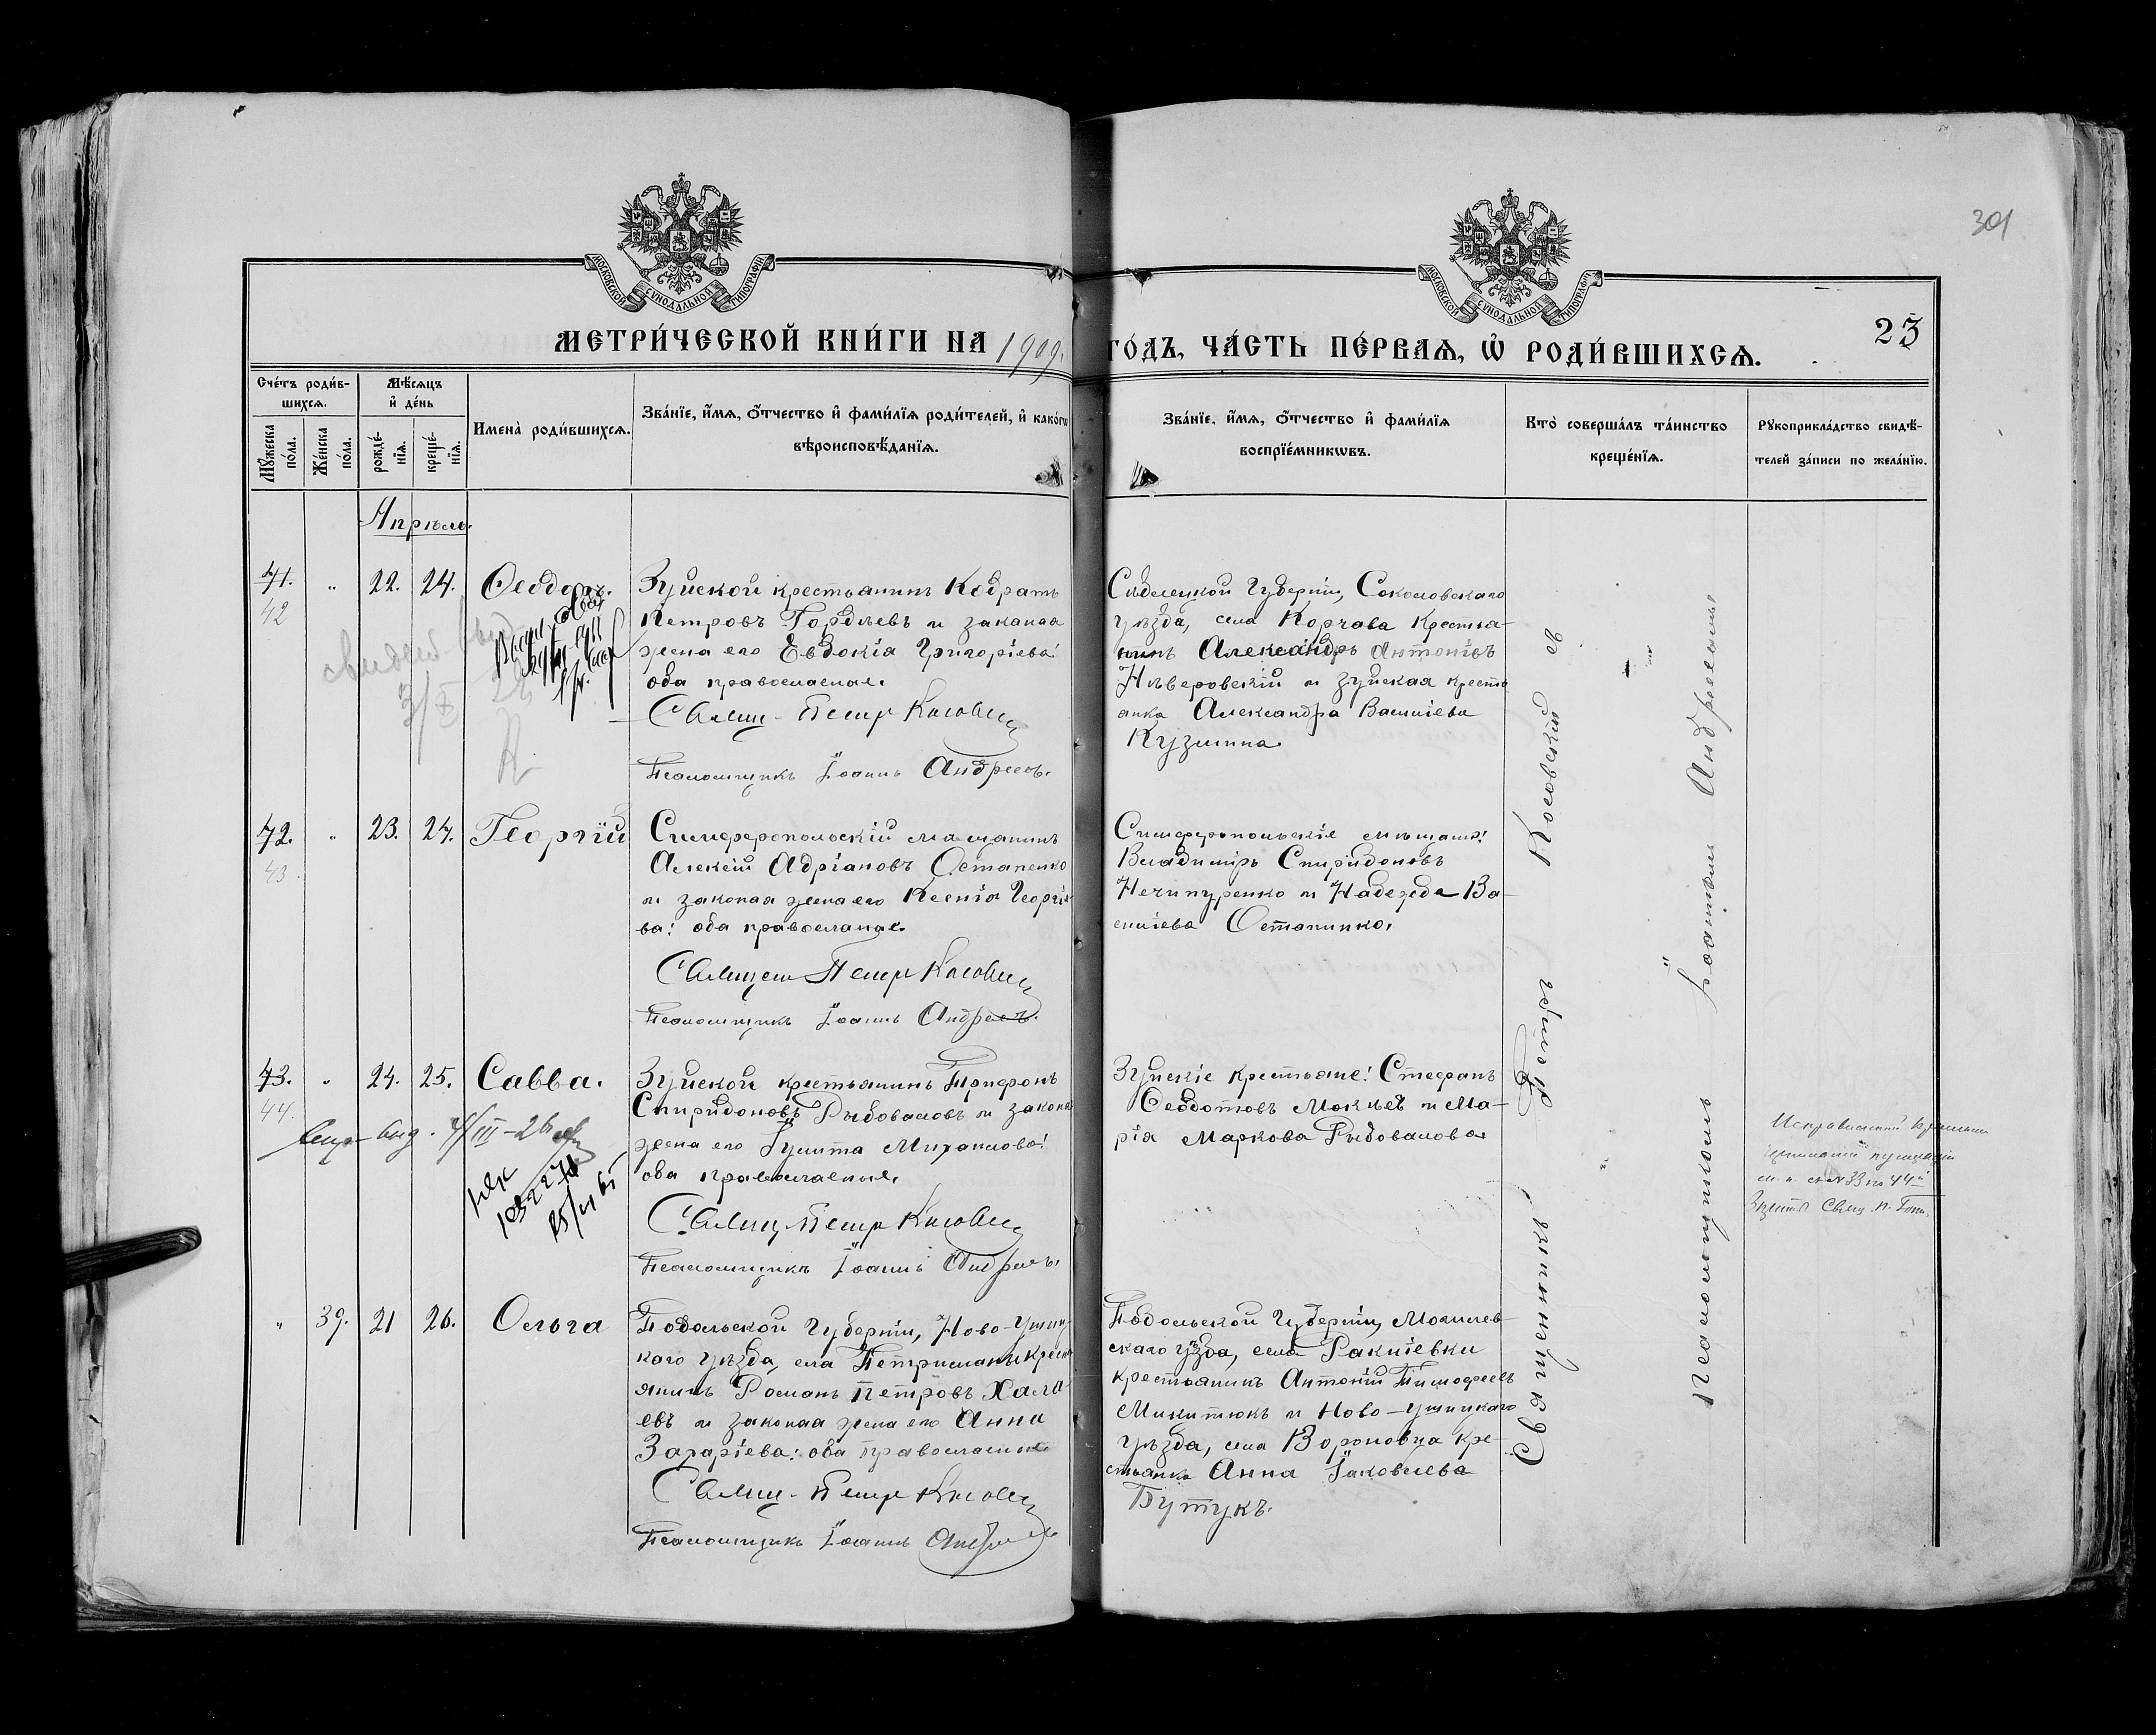 301
МОСКОВСКОЙ СУНОДАЛЬНОЙ ТИПОГРАФІИ
МОСКОВСКОЙ СУНОДАЛЬНОЙ ТИПОГРАФІИ
МЕТРИ́ЧЕСКОЙ КНИ́ГИ НА 1909.
ГО́ДЪ, ЧА́СТЬ ПЕ́РВАѦ, Ѡ РОДИ́ВШИХСѦ.
23
Сче́тъ роди́в-
шихсѧ.
Мꙋ́жеска по́ла.
Же́нска по́ла.
Мѣ́сѧцъ
и҆ де́нь
рожде́-
нїѧ.
креще́-
нїѧ.
И҆мена̀ роди́вшихсѧ.
Зва́нїе, и҆́мѧ, ѻ҆́тчество и҆ фами́лїѧ роди́телей, и҆ како́гѡ
вѣроисповѣ́данїѧ.
Зва́нїе, и҆́мѧ, ѻ҆́тчество и҆ фами́лїѧ
воспрїе́мникѡвъ.
Кто̀ соверша́лъ та́инство
креще́нїѧ.
Рꙋкоприкла́дство свидѣ́-
телей за́писи по жела́нїю.
Апрѣль.
41. " 22. 24. Ѳеодоръ.
42
Зуйской крестьянинъ Кодратъ
Петровъ Гордѣевъ и законая
жена его Евдокія Григоріева:
оба православные.
Свящ. Петръ Косовскій
Псаломщикъ Іоаннъ Андреевъ.
Сѣдлецкой Губерніи, Соколовскаго
уѣзда, села Корчева Крестья-
нинъ Александръ Антоніевъ
Нѣверовскій и Зуйская кресть
янка Александра Василіева
Кузмина.
72. " 23. 24. Георгій
43.
Симферопольскій мѣщанинъ
Алексій Адріановъ Остапенко
и законая жена его Ксенія Георгіе-
ва: оба православные.
Священ Петръ Косовскій
Псаломщикъ Іоаннъ Андреевъ.
Симферопольскіе мѣщане:
Владимиръ Спиридоновъ
Нечипуренко и Надежда Ва-
силіева Остапенко.
43. " 24. 25. Савва.
44.
Зуйской крестьянинъ Трифонъ
Спиридоновъ Рыбоваловъ и закона
жена его Іулита Михаилова:
оба православные.
Свящ. Петръ Косовскій
Псаломщикъ Іоаннъ Андреевъ.
Зуйскіе крестьяне: Стефанъ
Ѳеодотовъ Мокіевъ и Ма-
рія Маркова Рыбовалова
" 39. 21 26. Ольга
Подольской Губерніи, Ново-Ушиц
каго уѣзда, села Петримань Крест
янинъ Романъ Петровъ Хала
евъ и законая жена его Анна
Захаріева: оба православные
Свящ. Петръ Косовскій
Псаломщикъ Іоаннъ Андреевъ
Подольской Губерніи, Могилев-
скаго уѣзда, села Ракиіевки
Крестьянинъ Антоній Тимофеевъ
Микитюкъ и Ново-Ушицкаго
уѣзда, села Вороновца кре-
стьянка Анна Іаковлева
Бутукъ.
Священникъ Петръ Косовскій съ
Псаломщикомъ Іоанномъ Андреевымъ